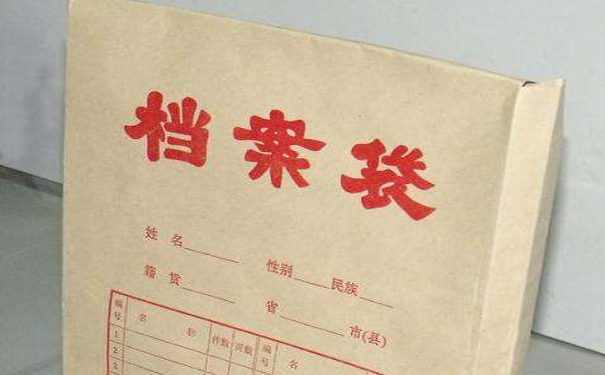 档案袋
姓名 性别 民族
籍贯 省 市(县)
编号 名称 件数 页数 编号 名
1
2
3